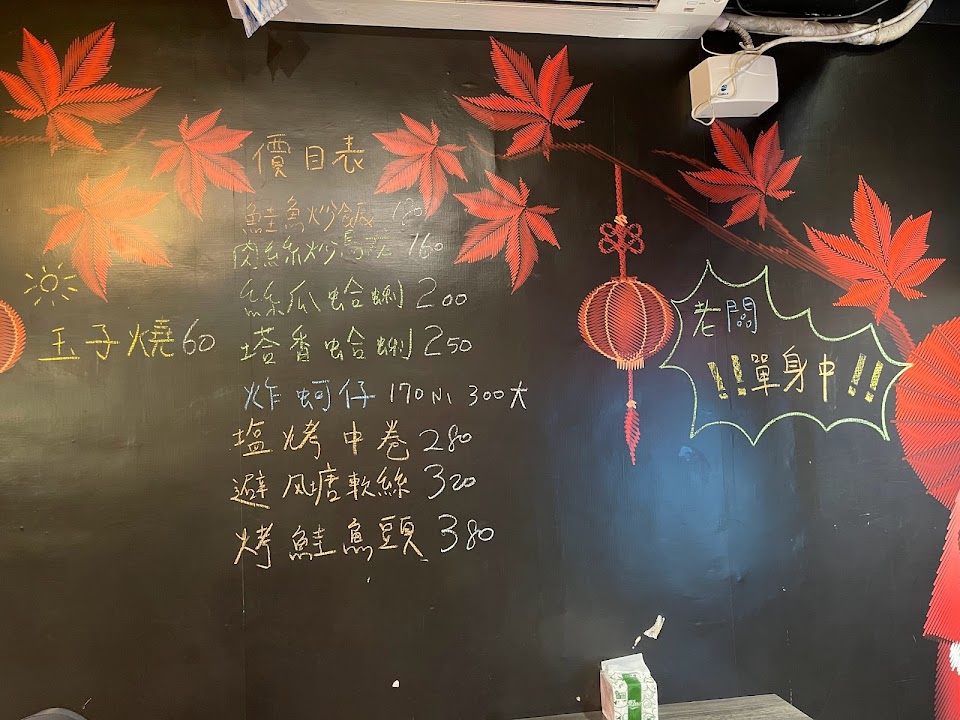 價目表
鮭魚炒飯
肉絲炒 160
絲瓜蛤蜊 200
塔香蛤蜊 250
玉子燒60
炸蚵仔 170小 300大
塩烤中卷 280
避风塘軟絲 320
烤鮭魚頭 380
老闆
!!單身中!!